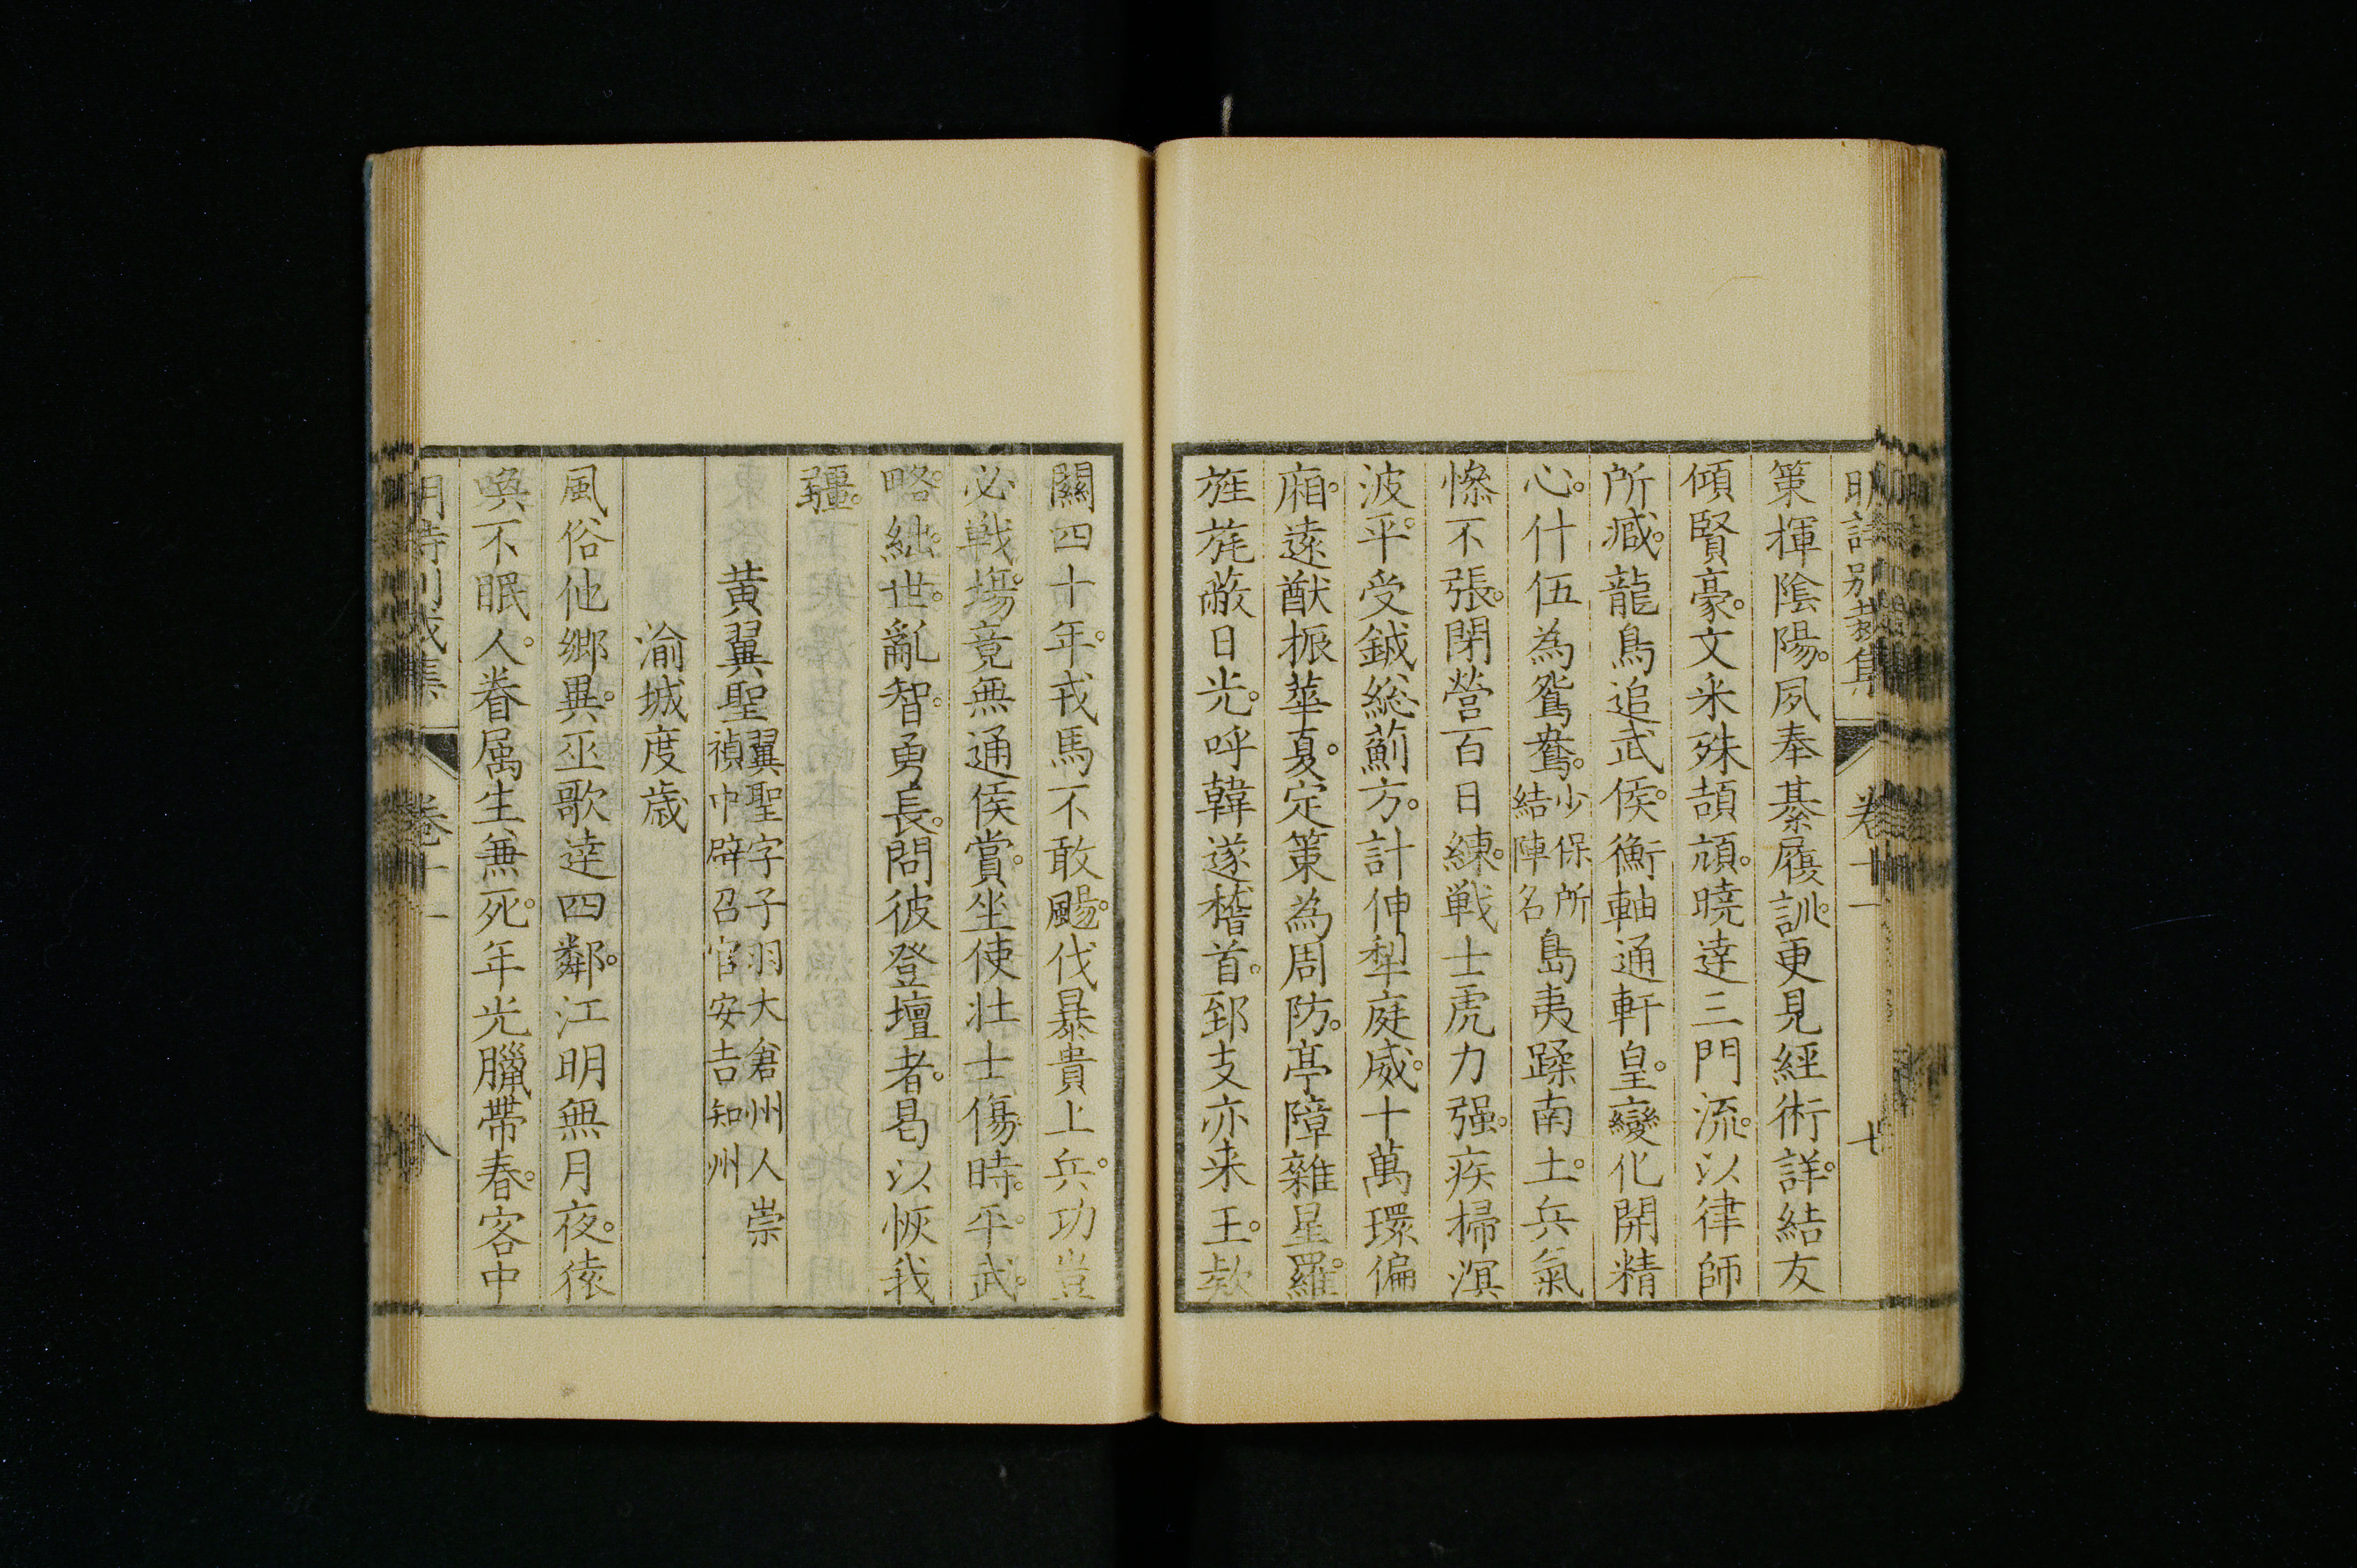 明詩別裁集 卷十一 七
策揮陰陽。夙奉綦履訓。更見經術詳。結友
傾賢豪。文采殊頡頏。曉達三門流。以律師
所臧。龍鳥追武侯。衡軸通軒皇。變化開精
心。什伍為鴛鴦。少保所結陣名島夷蹂南土。兵氣
慘不張。閉營百日練。戰士虎力强。疾掃溟
波平。受鉞総薊方。計伸犁庭威。十萬環偏
廂。遠猷振華夏。定策為周防。亭障雜星羅。
旌旄蔽日光。呼韓遂稽首。郅支亦来王。欵
關四十年。戎馬不敢颺。伐暴貴上兵。功豈
必戰塲。竟無通侯賞。坐使壮士傷。時平武
略絀。世亂智勇長。問彼登壇者。曷以恢我
疆。
黄翼聖翼聖字子羽大倉州人崇禎中辟召官安吉知州
渝城度歳
風俗他鄉異。巫歌達四鄰。江明無月夜。猿
喚不眠人。眷属生兼死。年光臘帶春。客中
明詩別裁集 卷十一 八